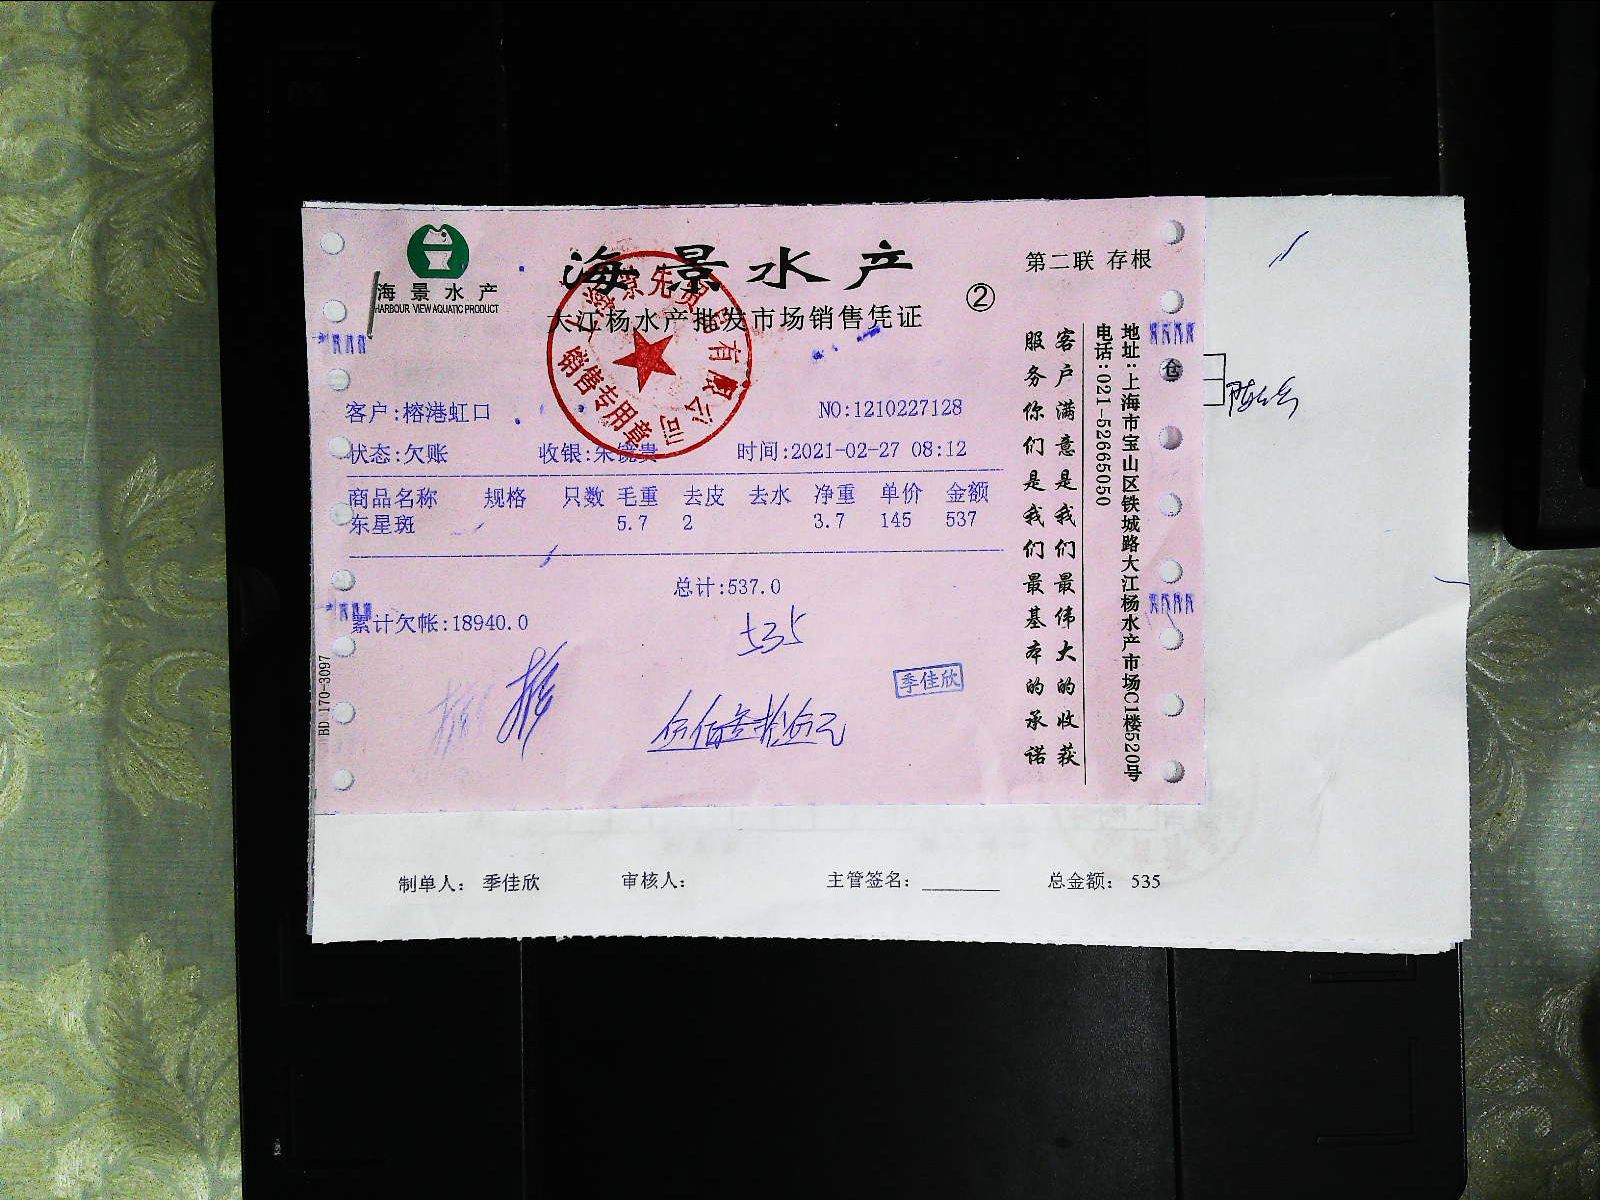 海景水产
HARBOUR VIEW AQUATIC PRODUCT
海景水产
大江杨水产批发市场销售凭证
②
第二联 存根
销售专用章
客户:榕港虹口
NO:1210227128
状态:欠账 收银:朱镜贵 时间:2021-02-27 08:12
商品名称 规格 只数 毛重 去皮 去水 净重 单价 金额
东星斑 5.7 2 3.7 145 537
总计:537.0
累计欠帐:18940.0
535
季佳欣
伍佰叁拾伍元
BD 170-3097
客户满意是我们最伟大的收获
服务你们是我们最基本的承诺
地址:上海市宝山区铁城路大江杨水产市场C1楼520号
电话:021-52665050
仓
制单人: 季佳欣 审核人: 主管签名: 总金额: 535